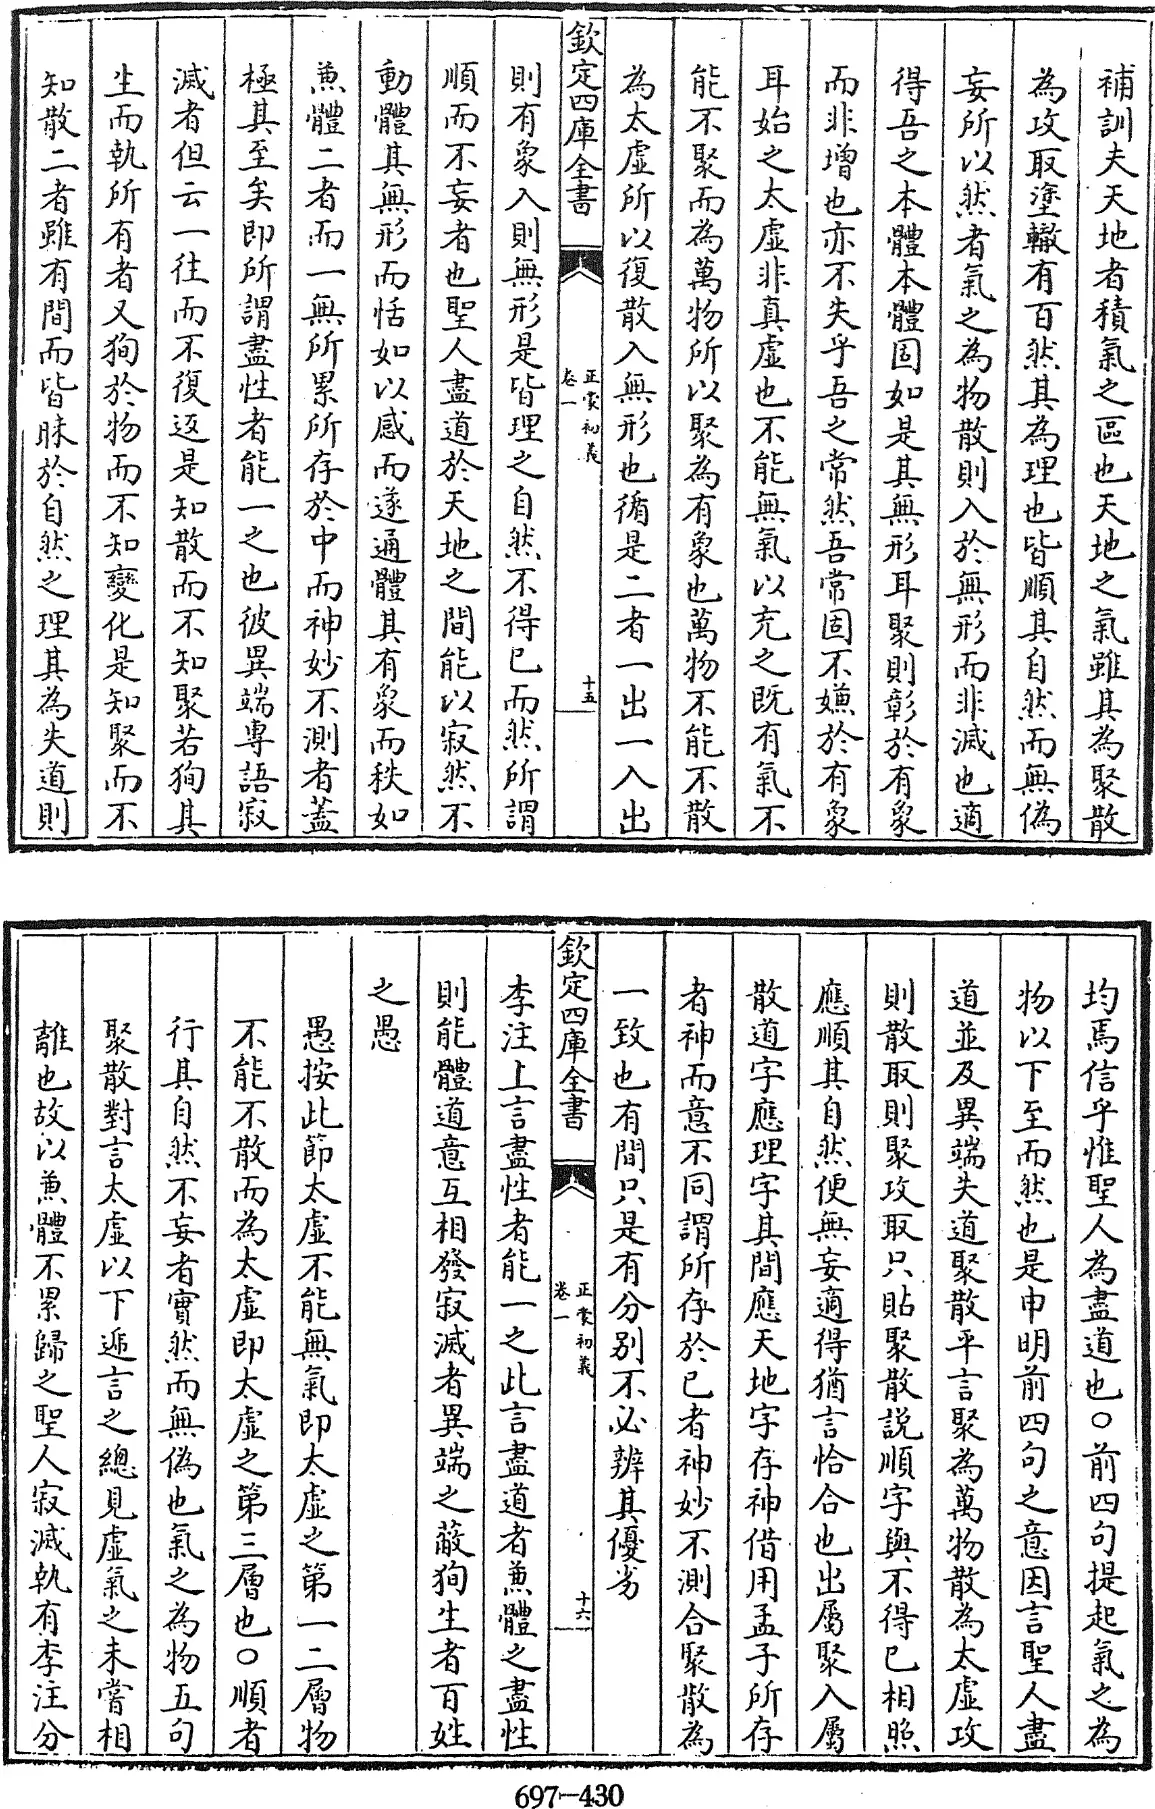 補訓夫天地者積氣之區也天地之氣雖其為聚散
為攻取塗轍有百然其為理也皆順其自然而無偽
妄所以然者氣之為物散則入於無形而非減也適
得吾之本體本體固如是其無形耳聚則彰於有象
而非增也亦不失乎吾之常然吾常固不嫌於有象
耳始之太虛非真虛也不能無氣以充之既有氣不
能不聚而為萬物所以聚為有象也萬物不能不散
為太虛所以復散入無形也循是二者一出一入出
欽定四庫全書
正蒙初義
卷一
十五
則有象入則無形是皆理之自然不得已而然所謂
順而不妄者也聖人盡道於天地之間能以寂然不
動體其無形而恬如以感而遂通體其有象而秩如
兼體二者而一無所累所存於中而神妙不測者蓋
極其至矣即所謂盡性者能一之也彼異端專語寂
滅者但云一往而不復返是知散而不知聚若狥其
生而執所有者又狥於物而不知變化是知聚而不
知散二者雖有間而皆昧於自然之理其為失道則
均焉信乎惟聖人為盡道也○前四句提起氣之為
物以下至而然也是申明前四句之意因言聖人盡
道並及異端失道聚散平言聚為萬物散為太虛攻
則散取則聚攻取只貼聚散說順字與不得已相照
應順其自然便無妄適得猶言恰合也出屬聚入屬
散道字應理字其間應天地字存神借用孟子所存
者神而意不同謂所存於已者神妙不測合聚散為
一致也有間只是有分別不必辨其優劣
欽定四庫全書
正蒙初義
卷一
十六
李注上言盡性者能一之此言盡道者兼體之盡性
則能體道意互相發寂滅者異端之蔽狥生者百姓
之愚
愚按此節太虛不能無氣即太虛之第一二層物
不能不散而為太虛即太虛之第三層也○順者
行其自然不妄者實然而無偽也氣之為物五句
聚散對言太虛以下遞言之總見虛氣之未嘗相
離也故以兼體不累歸之聖人寂滅執有李注分
697-430